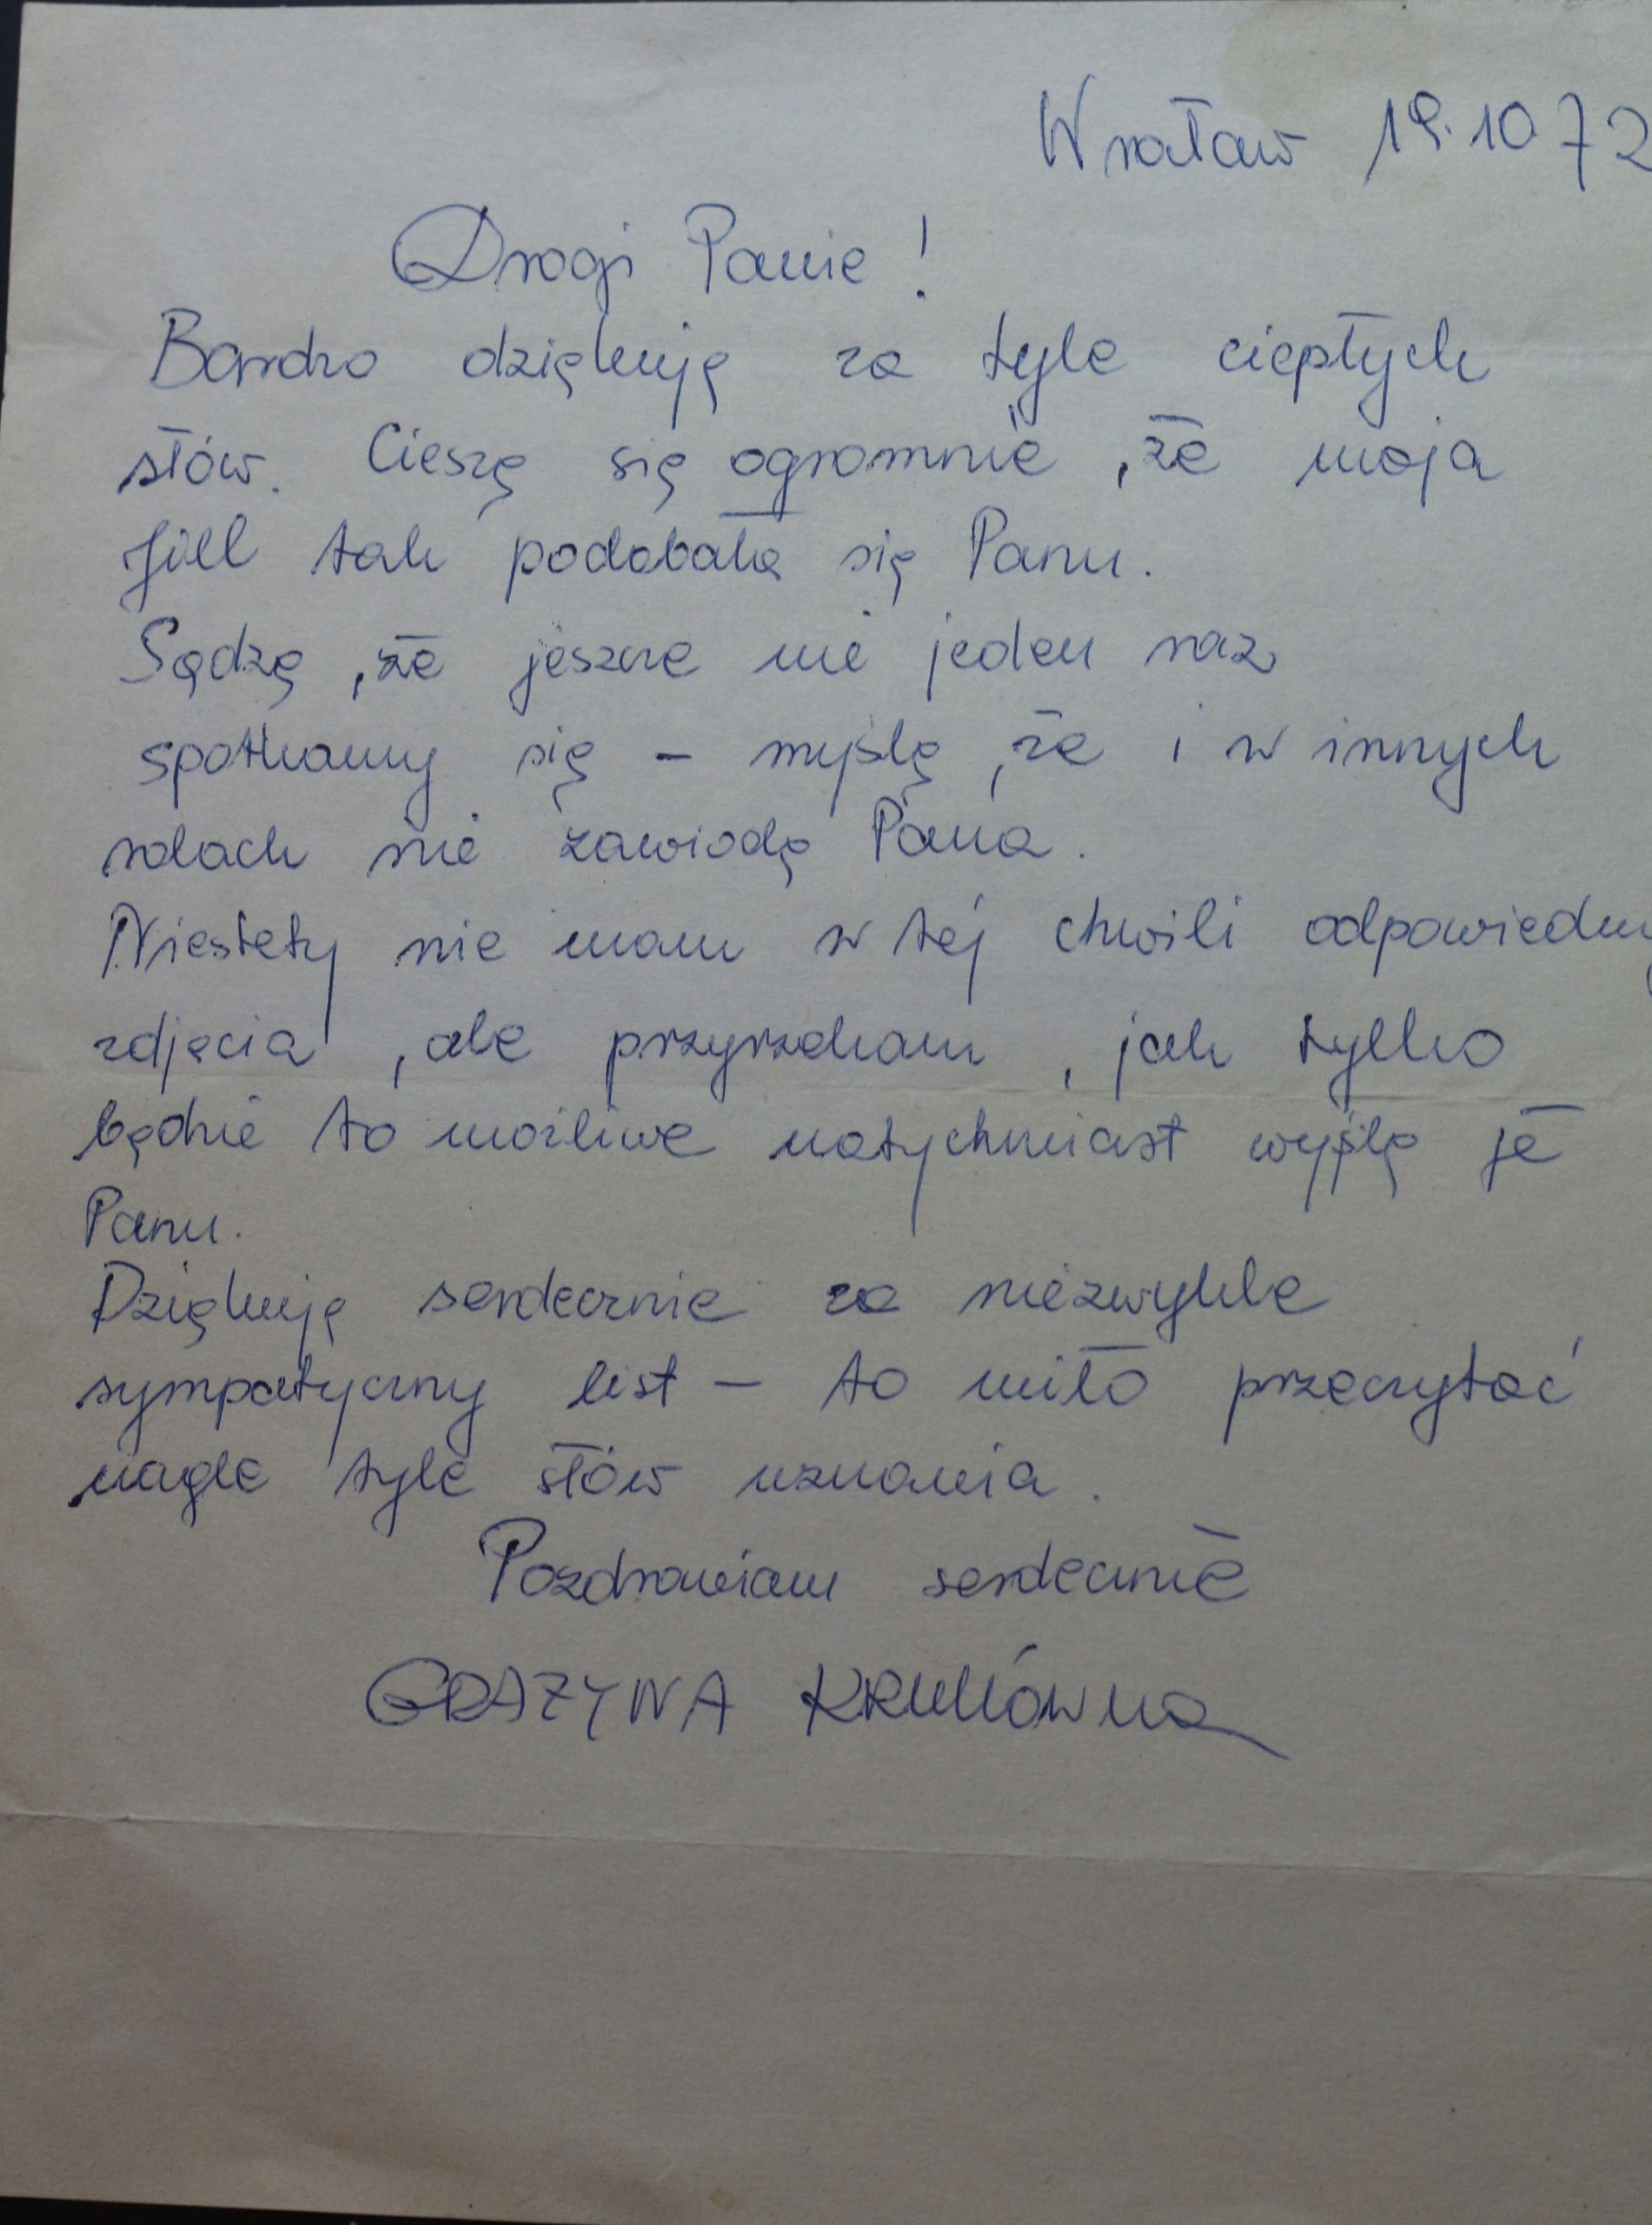 Wrocław 19.10.72
Drogi Panie!
Bardzo dziękuję za tyle ciepłych
słów. Cieszę się ogromnie, że moja
Jill tak podobała się Panu.
Sądzę, że jeszcze nie jeden raz
spotkamy się – myślę, że i w innych
rolach nie zawiodę Pana.
Niestety nie mam w tej chwili
zdjęcia, ale przyrzekam, jak tylko
będzie to możliwe natychmiast wyślę je
Panu.
Dziękuję serdecznie za niezwykle
sympatyczny list – to miło przeczytać
nagle tyle słów uznania.
Pozdrawiam serdecznie
GRAŻYNA KRUKÓWNA